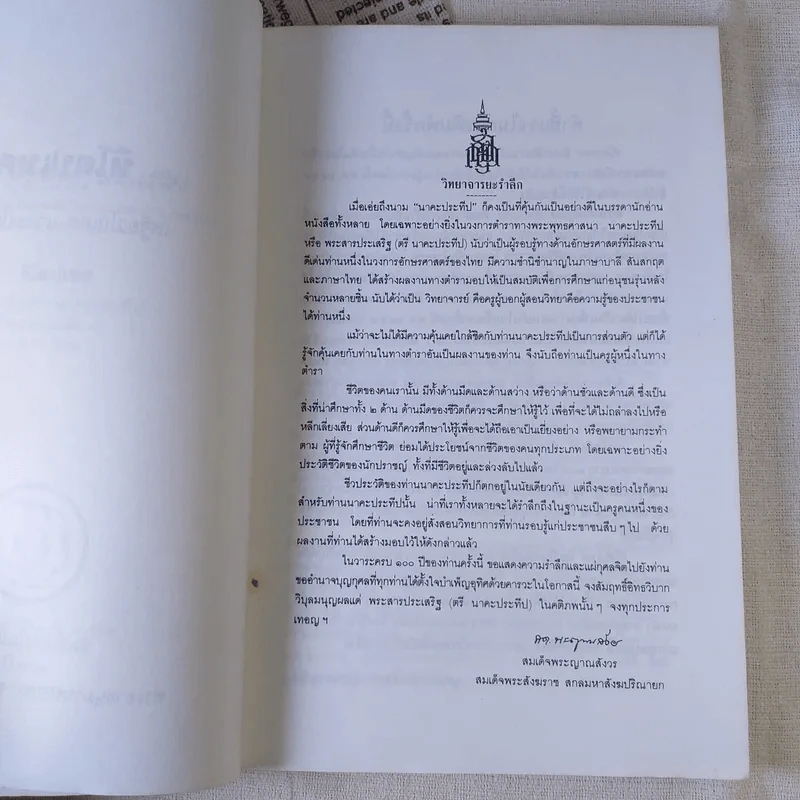 วิทยาจารยะรำลึก
เมื่อเอ่ยถึงนาม "นาคะประทีป" ก็คงเป็นที่คุ้นกันเป็นอย่างดีในบรรดานักอ่าน
หนังสือทั้งหลาย โดยเฉพาะอย่างยิ่งในวงการตำราทางพระพุทธศาสนา นาคะประทีป
หรือ พระสารประเสริฐ (ตรี นาคะประทีป) นับว่าเป็นผู้รอบรู้ทางด้านอักษรศาสตร์ที่มีผลงาน
ดีเด่นท่านหนึ่งในวงการอักษรศาสตร์ของไทย มีความชำนิชำนาญในภาษาบาลี สันสกฤต
และภาษาไทย ได้สร้างผลงานทางตำรามอบให้เป็นสมบัติเพื่อการศึกษาแก่อนุชนรุ่นหลัง
จำนวนหลายชิ้น นับได้ว่าเป็น วิทยาจารย์ คือครูผู้บอกผู้สอนวิทยาคือความรู้ของประชาชน
ได้ท่านหนึ่ง
แม้ว่าจะไม่ได้มีความคุ้นเคยใกล้ชิดกับท่านนาคะประทีปเป็นการส่วนตัว แต่ก็ได้
รู้จักคุ้นเคยกับท่านในทางตำราอันเป็นผลงานของท่าน จึงนับถือท่านเป็นครูผู้หนึ่งในทาง
ตำรา
ชีวิตของคนเรานั้น มีทั้งด้านมืดและด้านสว่าง หรือว่าด้านชั่วและด้านดี ซึ่งเป็น
สิ่งที่น่าศึกษาทั้ง ๒ ด้าน ด้านมืดของชีวิตก็ควรจะศึกษาให้รู้ไว้ เพื่อที่จะได้ไม่ถลำลงไปหรือ
หลีกเลี่ยงเสีย ส่วนด้านดีก็ควรศึกษาให้รู้เพื่อจะได้ถือเอาเป็นเยี่ยงอย่าง หรือพยายามกระทำ
ตาม ผู้ที่รู้จักศึกษาชีวิต ย่อมได้ประโยชน์จากชีวิตของคนทุกประเภท โดยเฉพาะอย่างยิ่ง
ประวัติชีวิตของนักปราชญ์ ทั้งที่มีชีวิตอยู่และล่วงลับไปแล้ว
ชีวประวัติของท่านนาคะประทีปก็ตกอยู่ในนัยเดียวกัน แต่ถึงจะอย่างไรก็ตาม
สำหรับท่านนาคะประทีปนั้น น่าที่เราทั้งหลายจะได้รำลึกถึงในฐานะเป็นครูคนหนึ่งของ
ประชาชน โดยที่ท่านจะคงอยู่สั่งสอนวิทยาการที่ท่านรอบรู้แก่ประชาชนสืบ ๆ ไป ด้วย
ผลงานที่ท่านได้สร้างมอบไว้ให้ดังกล่าวแล้ว
ในวาระครบ ๑๐๐ ปีของท่านครั้งนี้ ขอแสดงความรำลึกและแผ่กุศลจิตไปยังท่าน
ขออำนาจบุญกุศลที่ทุกท่านได้ตั้งใจบำเพ็ญอุทิศด้วยคารวะในโอกาสนี้ จงสัมฤทธิ์อิทธวิบาก
วิบุลมนุญผลแด่ พระสารประเสริฐ (ตรี นาคะประทีป) ในคติภพนั้น ๆ จงทุกประการ
เทอญ ฯ
สมเด็จพระญาณสังวร
สมเด็จพระสังฆราช สกลมหาสังฆปริณายก